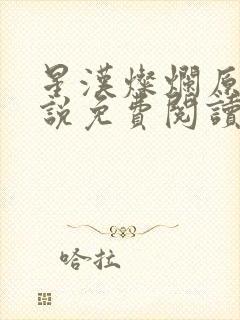 星漢燦爛原
說免費閱讀
哈拉